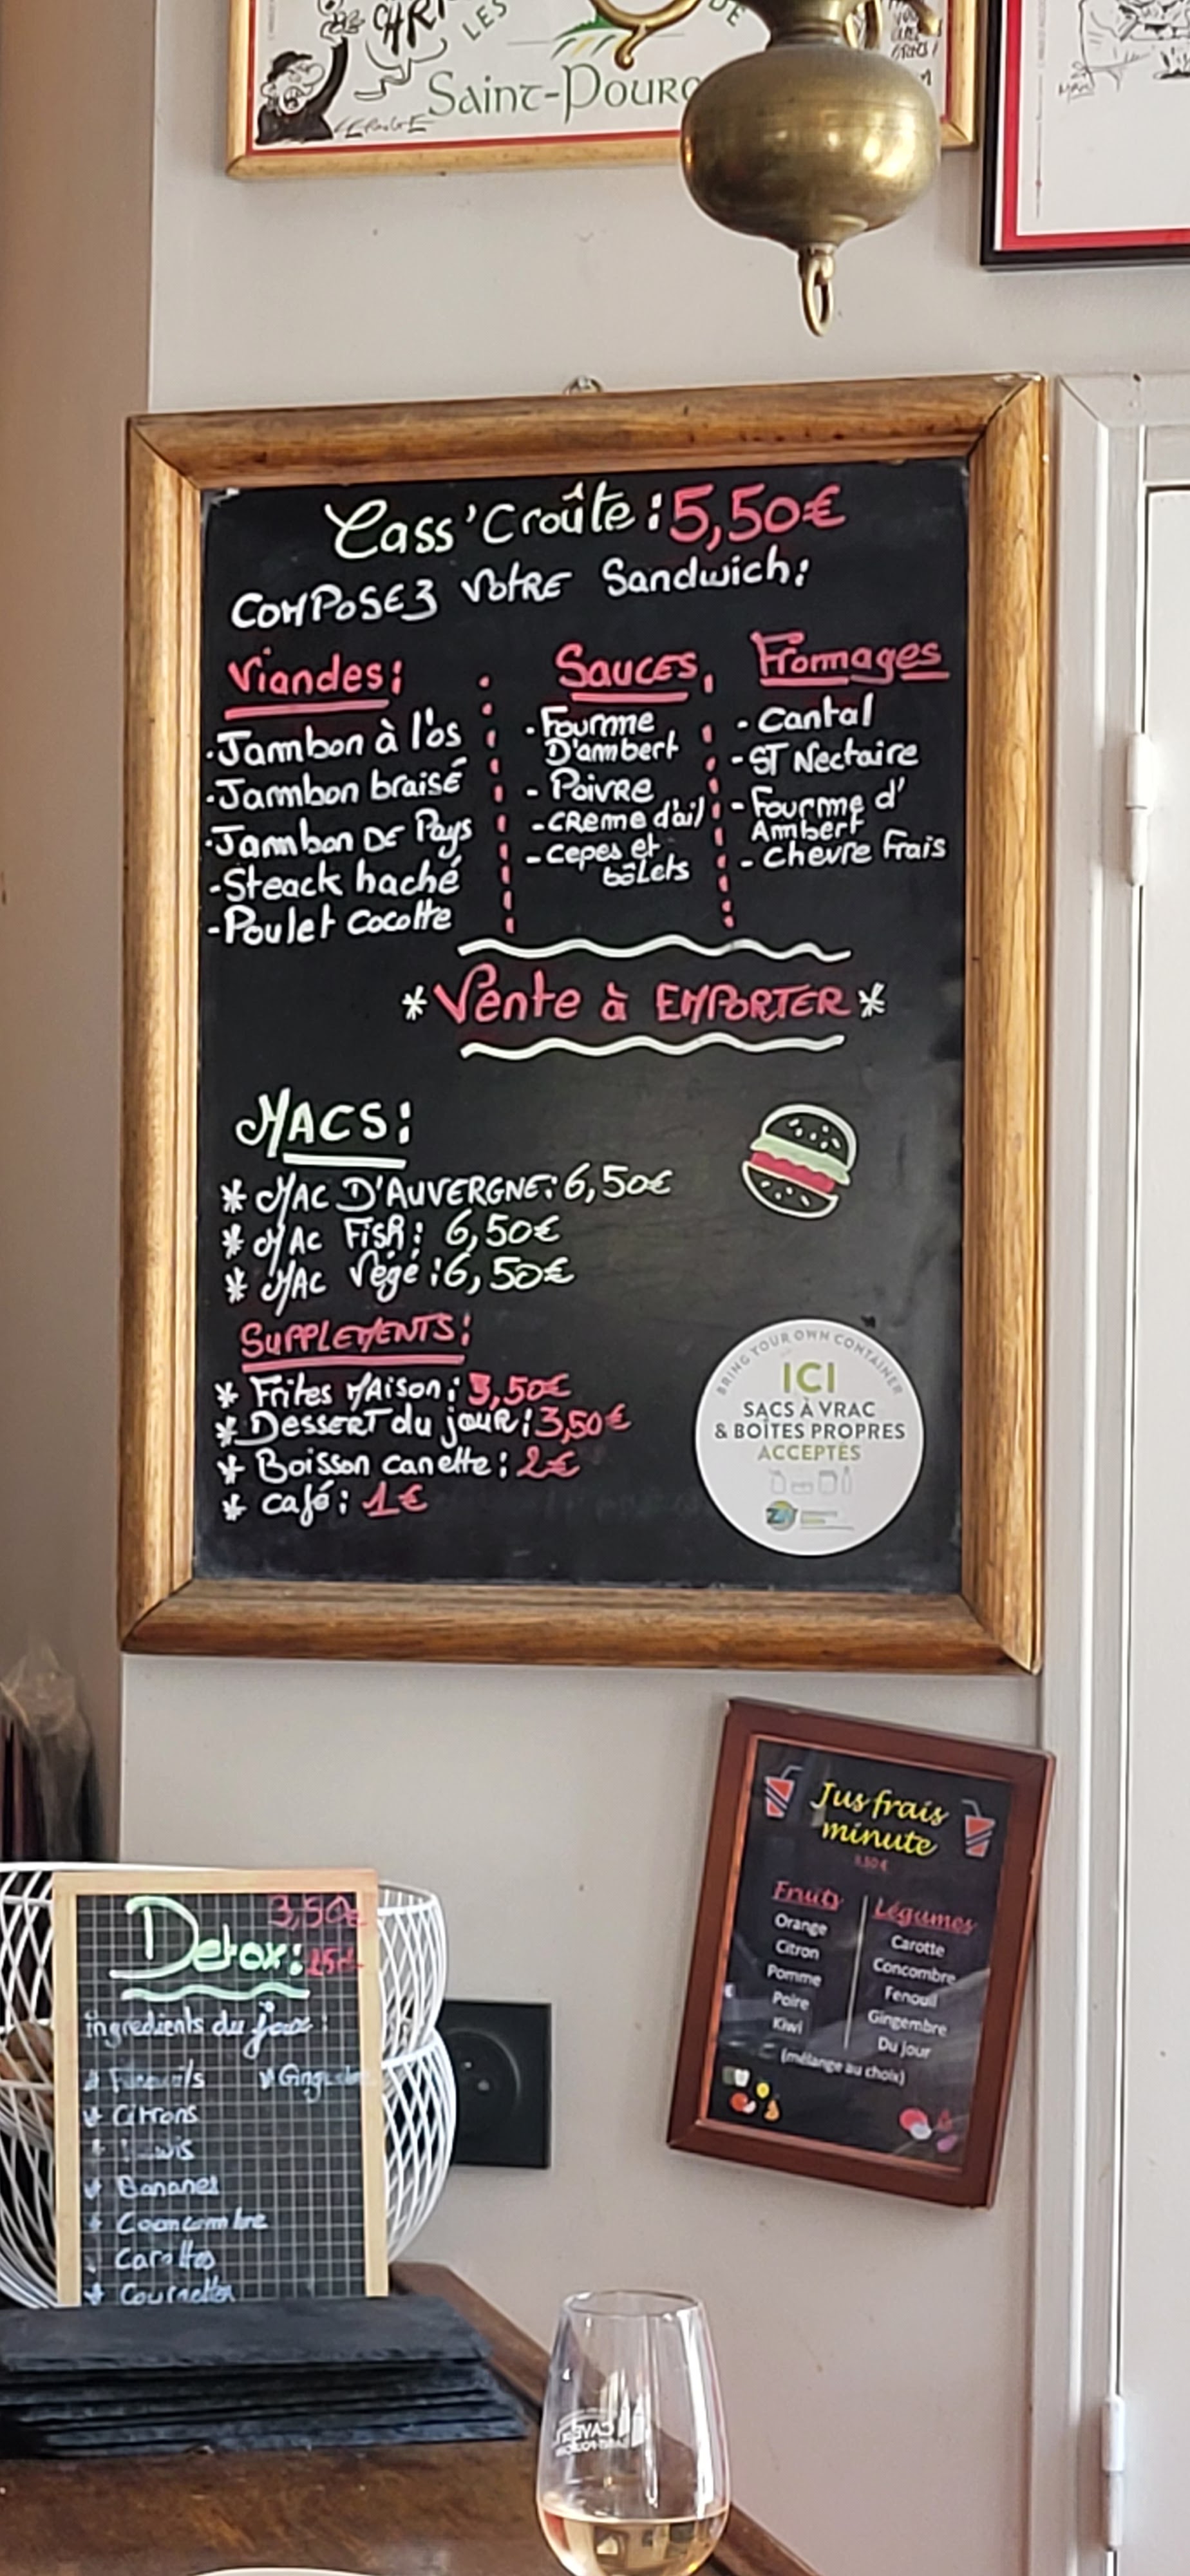 LES
DE
Saint-Pourç
Cass'Croûte : 5,50€
COMPOSEZ VOTRE Sandwich :
Viandes :
- Jambon à l'os
- Jambon braisé
- Jambon DE Pays
- Steack haché
- Poulet cocotte
SAUCES
- Fourme
D'ambert
- Poivre
- CREME d'ail
- Cepes et
bôLets
Fromages
- Cantal
- ST Nectaire
- Fourme d'
Ambert
- Chevre Frais
* Vente à EMPORTER *
MACS :
* MAC D'AUVERGNE : 6,50€
* MAC Fish : 6,50€
* MAC Végé : 6,50€
SUPPLEMENTS :
* Frites MAison : 3,50€
* DESSERT du jour : 3,50€
* Boisson canette : 2€
* café : 1€
BRING YOUR OWN CONTAINER
ICI
SACS À VRAC
& BOÎTES PROPRES
ACCEPTÉS
Jus frais
minute
3.50 €
Fruits
Orange
Citron
Pomme
Poire
Kiwi
Légumes
Carotte
Concombre
Fenouil
Gingembre
Du jour
(mélange au choix)
3,50€
Detox :
25cl
ingredients du jour :
Citrons
Bananes
Carottes
CAVE